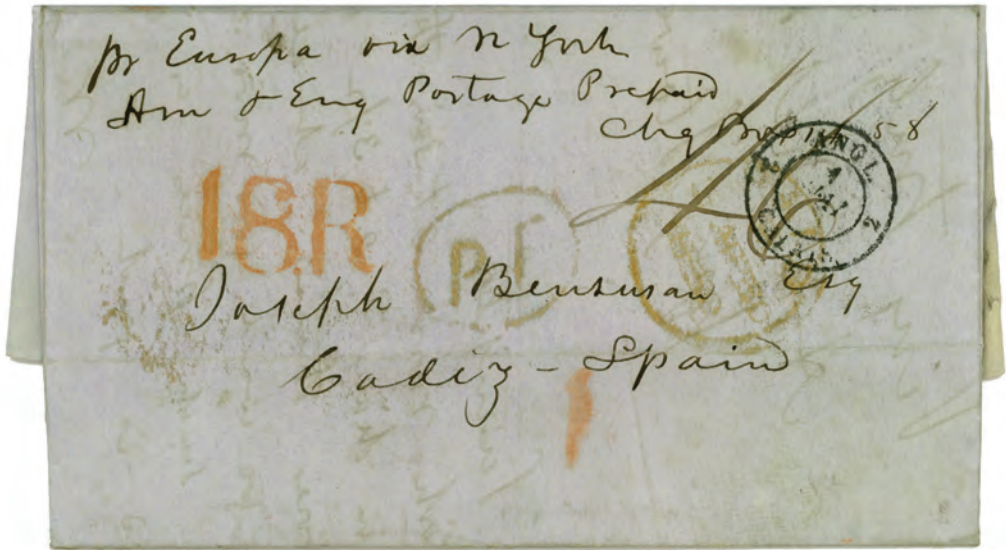 pr Europa via N York
Am & Eng Postage Prepaid
Chg Box 58
18.R
PF
ANGL
2
Joseph Bensusan Esq
Cadiz - Spain